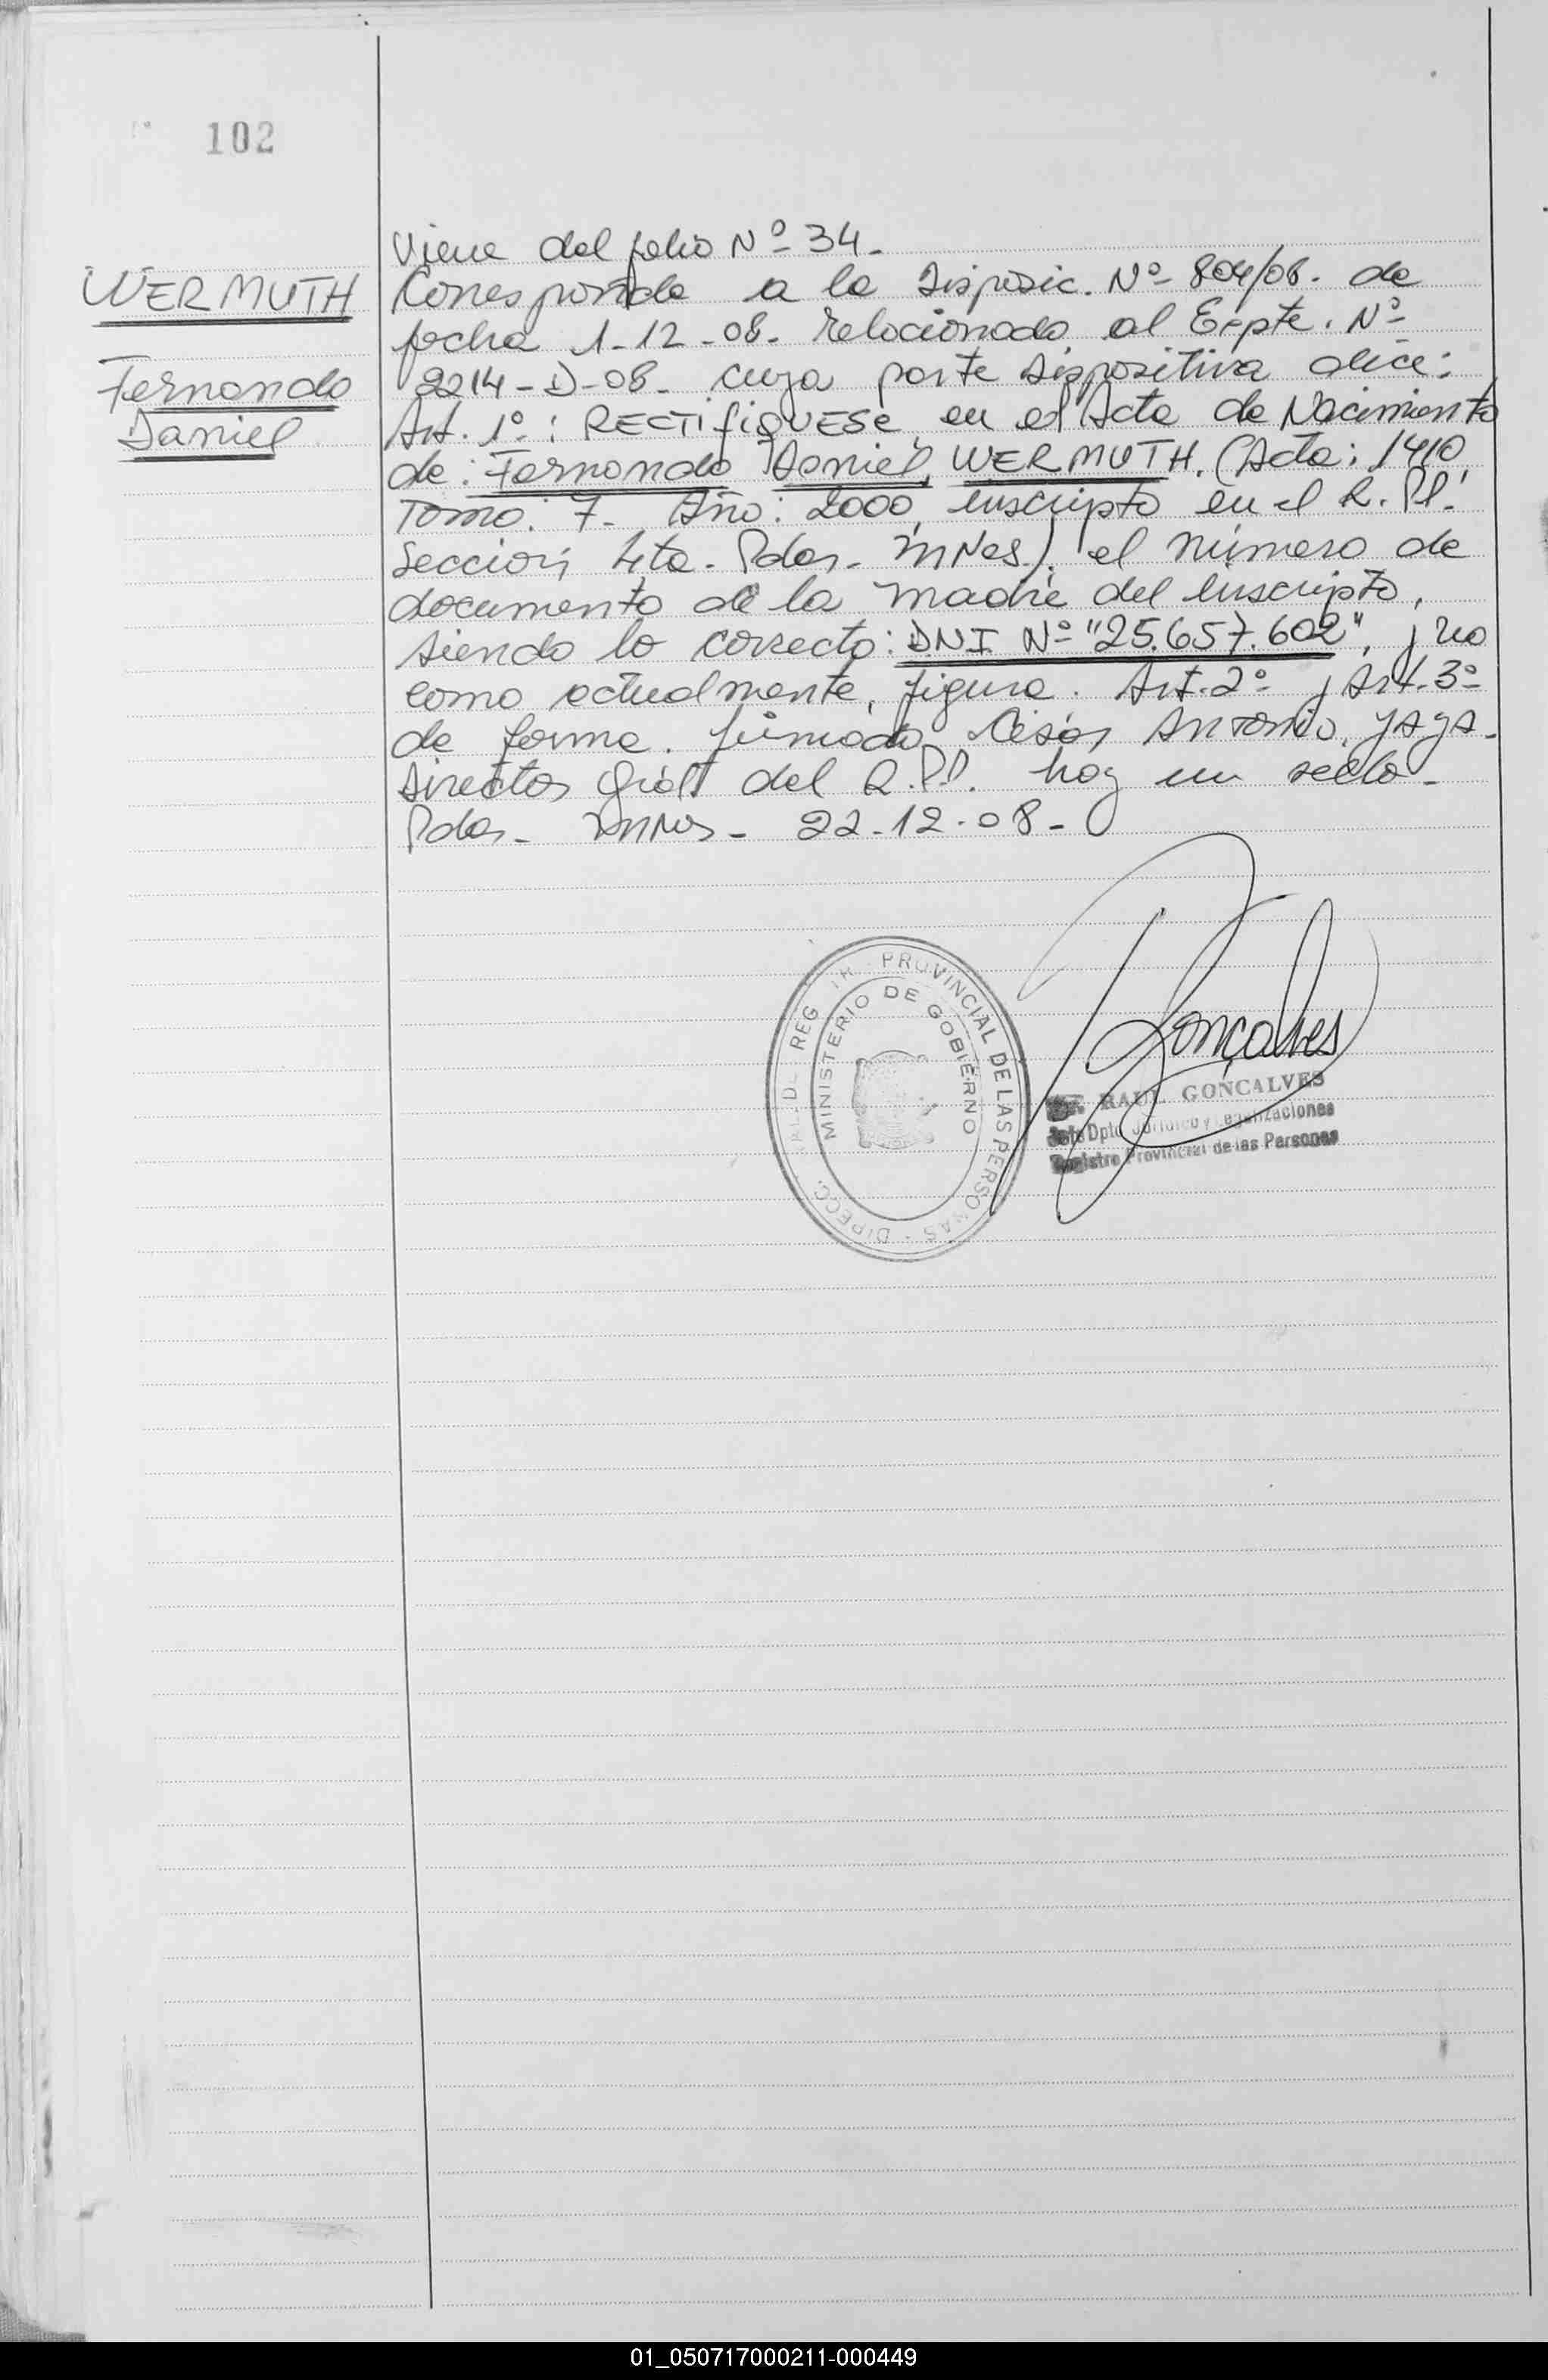 102
WERMUTH
Fernando
Daniel
Viene del folio Nº 34-
Corresponde a la Disposic. Nº 804/08. de
fecha 1-12-08. relacionado al Expte. Nº
2214-D-08- cuya parte dispositiva dice:
Art. 1º: RECTIFIQUESE en el Acta de Nacimiento
de: Fernando Daniel, WERMUTH. (Acta: 1410
Tomo: 7- Año: 2000, inscripto en el R.PP.
Sección 4ta- Pdas- Mnes). el número de
documento de la madre del inscripto,
siendo lo correcto: DNI Nº "25.657.602", y no
como actualmente, figura. Art. 2º y Art. 3º
de forma. firmado César Antonio, YAYA-
Director Gral del R.PP. hay un sello-
Pdas- Mnes- 22-12-08-
PROVINCIAL DE LAS PERSONAS
MINISTERIO DE GOBIERNO
Gonçalves
RAUL GONCALVES
Jefe Dpto Jurídico y Legalizaciones
Registro Provincial de las Personas
01_050717000211-000449